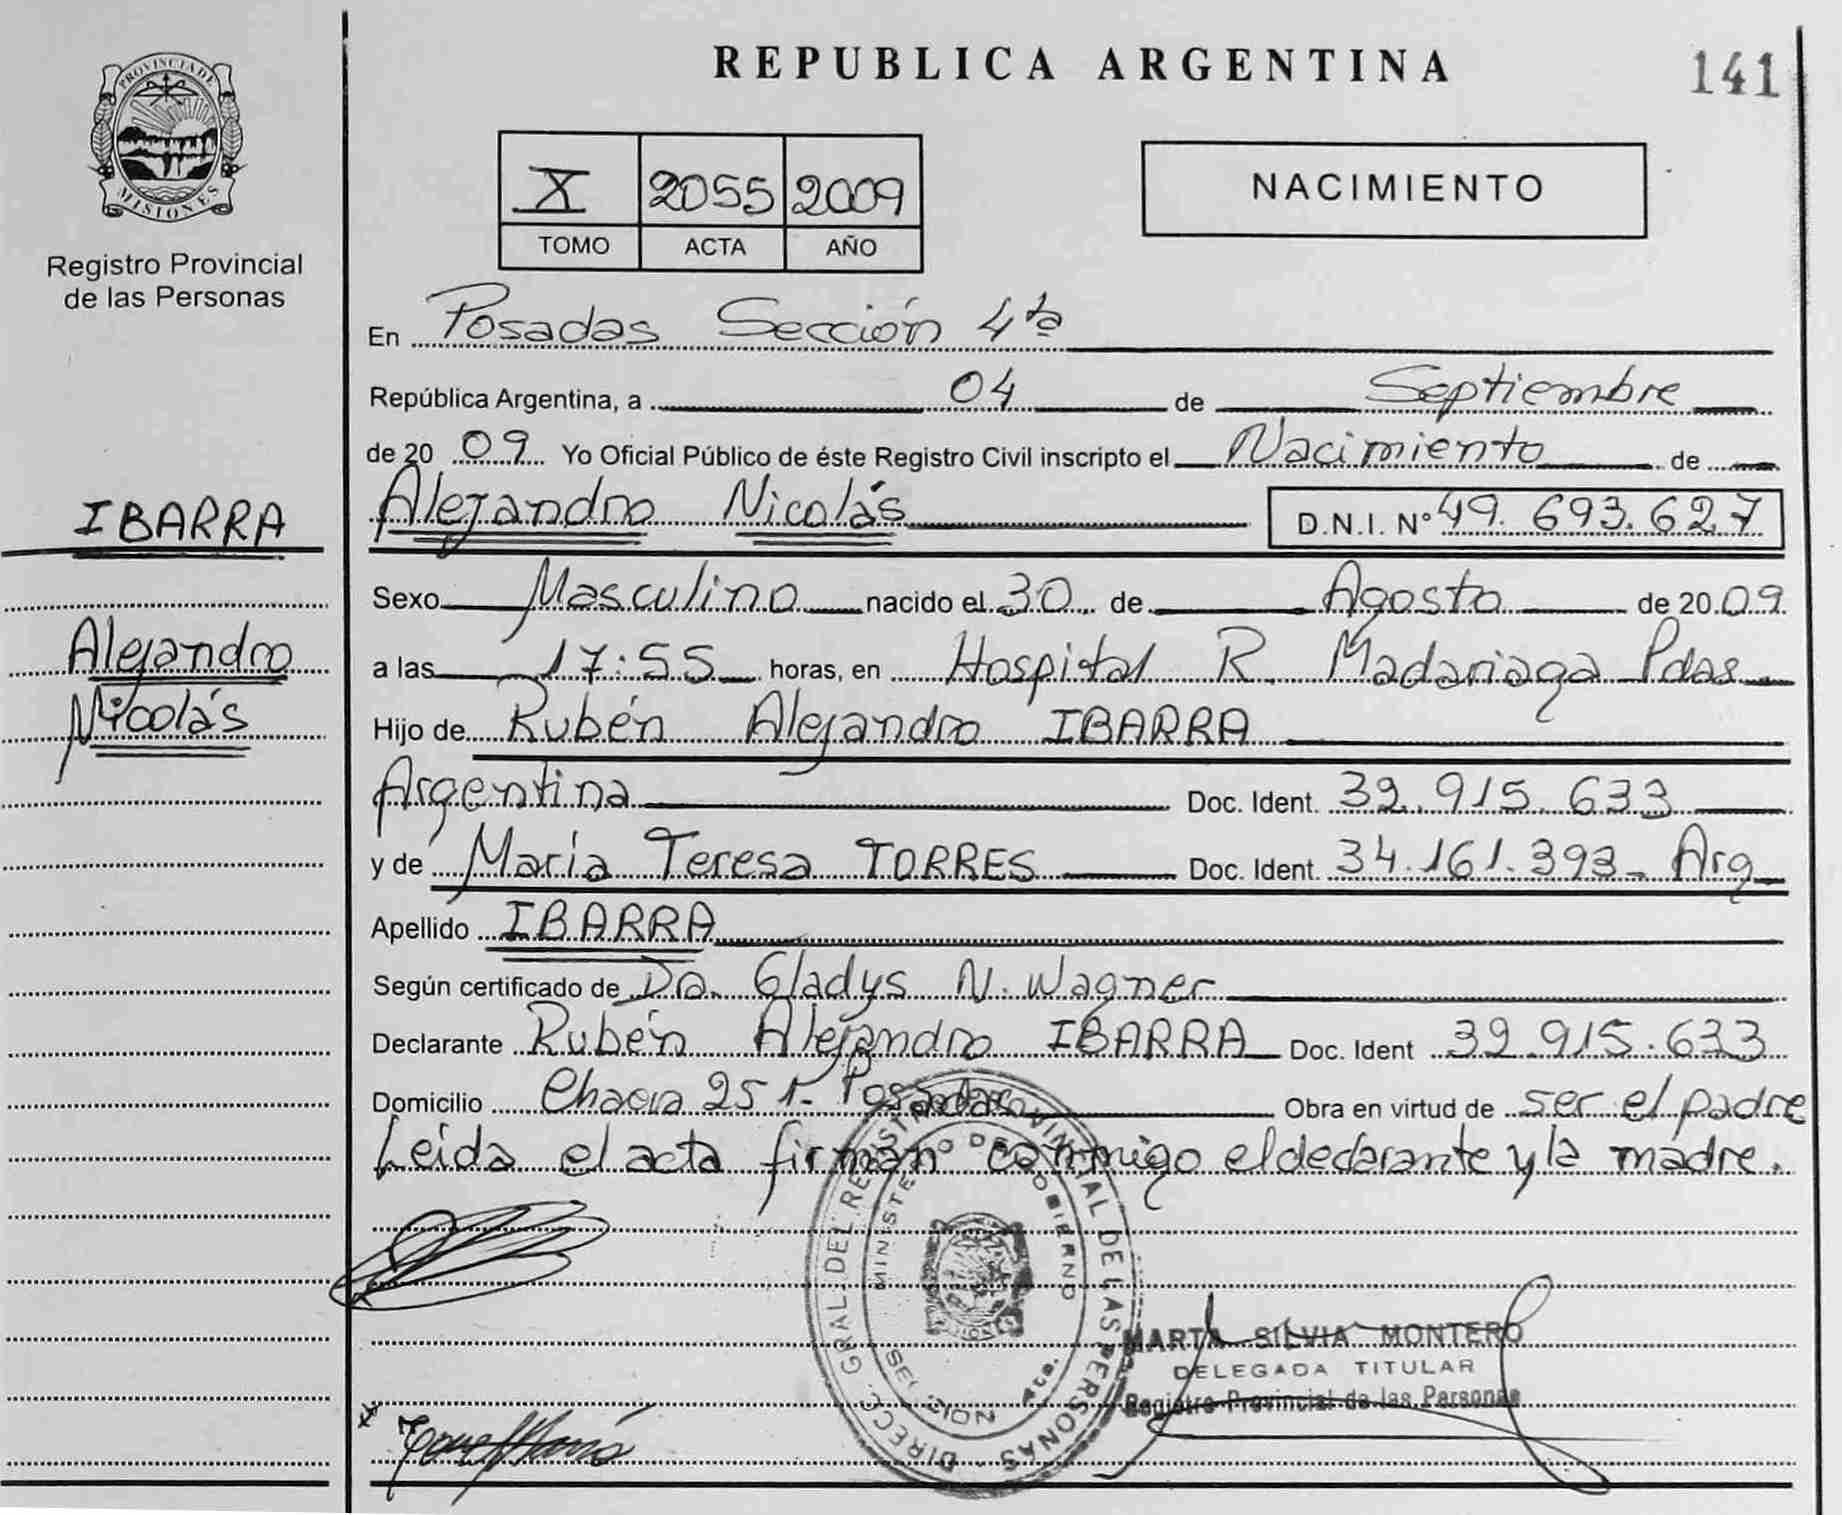 REPUBLICA ARGENTINA
141
PROVINCIA DE MISIONES
Registro Provincial
de las Personas
X 2055 2009
TOMO ACTA AÑO
NACIMIENTO
En Posadas Sección 4ta
República Argentina, a 04 de Septiembre
de 20 09 Yo Oficial Público de éste Registro Civil inscripto el Nacimiento de
IBARRA
Alejandro Nicolás D.N.I. Nº 49.693.627
Sexo Masculino nacido el 30 de Agosto de 20 09
Alejandro
a las 17:55 horas, en Hospital R. Madariaga Pdas
Nicolás
Hijo de Rubén Alejandro IBARRA
Argentina Doc. Ident. 32.915.633
y de María Teresa TORRES Doc. Ident. 34.161.393- Arg
Apellido IBARRA
Según certificado de Dra. Gladys N. Wagner
Declarante Rubén Alejandro IBARRA Doc. Ident 32.915.633
Domicilio Chacra 251- Posadas Obra en virtud de ser el padre
Leída el acta firman conmigo el declarante y la madre.
DIRECC. GRAL. DEL REGISTRO PROVINCIAL DE LAS PERSONAS
MINISTERIO DE GOBIERNO
SECCION 4ta.
MARTA SILVIA MONTERO
DELEGADA TITULAR
Registro Provincial de las Personas